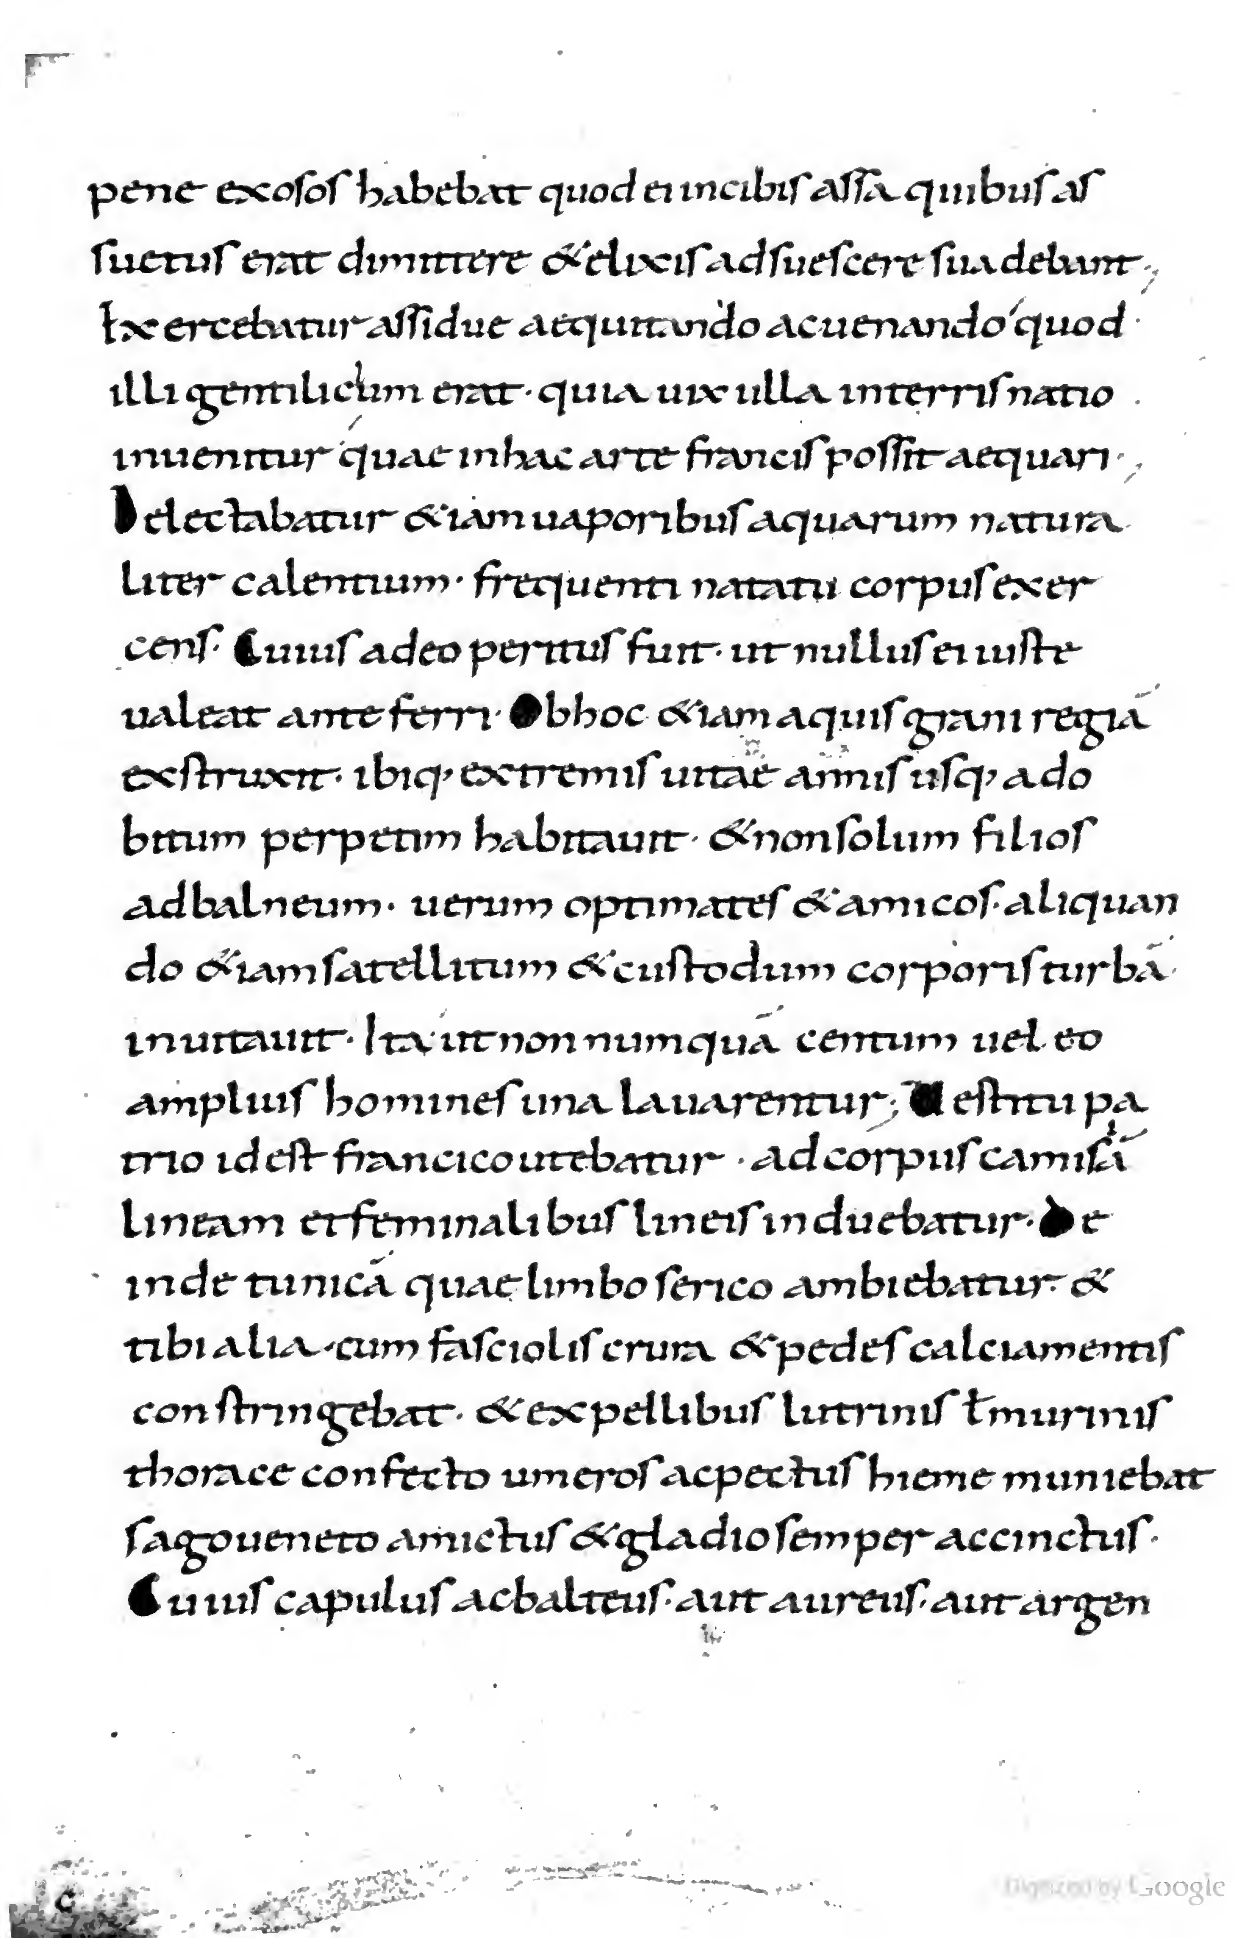 pene exosos habebat quod ei incibis assa quibus as
suetus erat dimittere & elixis adsuescere suadebant.,
Exercebatur assidue aequitando acuenando quod.
illi gentilicium erat. quia uix ulla interris natio
inuenitur quae inhac arte francis possit aequari.,
Delectabatur &iam uaporibus aquarum natura
liter calentium. frequenti natatu corpus exer
cens. Cuius adeo peritus fuit. ut nullus ei iuste
ualeat anteferri. Obhoc &iam aquisgrani regiā
exstruxit. ibiq; extremis uitae annis usq; ado
bitum perpetim habitauit. & non solum filios
adbalneum. uerum optimates & amicos. aliquan
do &iam satellitum & custodum corporis turbā.
inuitauit. Ita ut non numquā centum uel eo
amplius homines una lauarentur; Uestitu pa
trio id est francico utebatur. ad corpus camisiā
lineam et feminalibus lineis induebatur. De
inde tunicā quae limbo serico ambiebatur. &
tibialia. cum fasciolis crura & pedes calciamentis
constringebat. & ex pellibus lutrinis ł murinis
thorace confecto umeros ac pectus hieme muniebat
sago ueneto amictus & gladio semper accinctus.
Cuius capulus ac balteus. aut aureus. aut argen
c
Digitized by Google